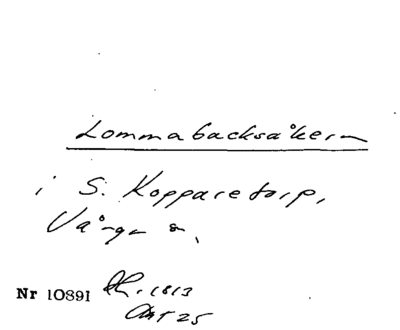 Lommabacksåkern
i S. Kopparetorp,
Vånga sn.
Nr 10891 Lh. 1813
Akt 25